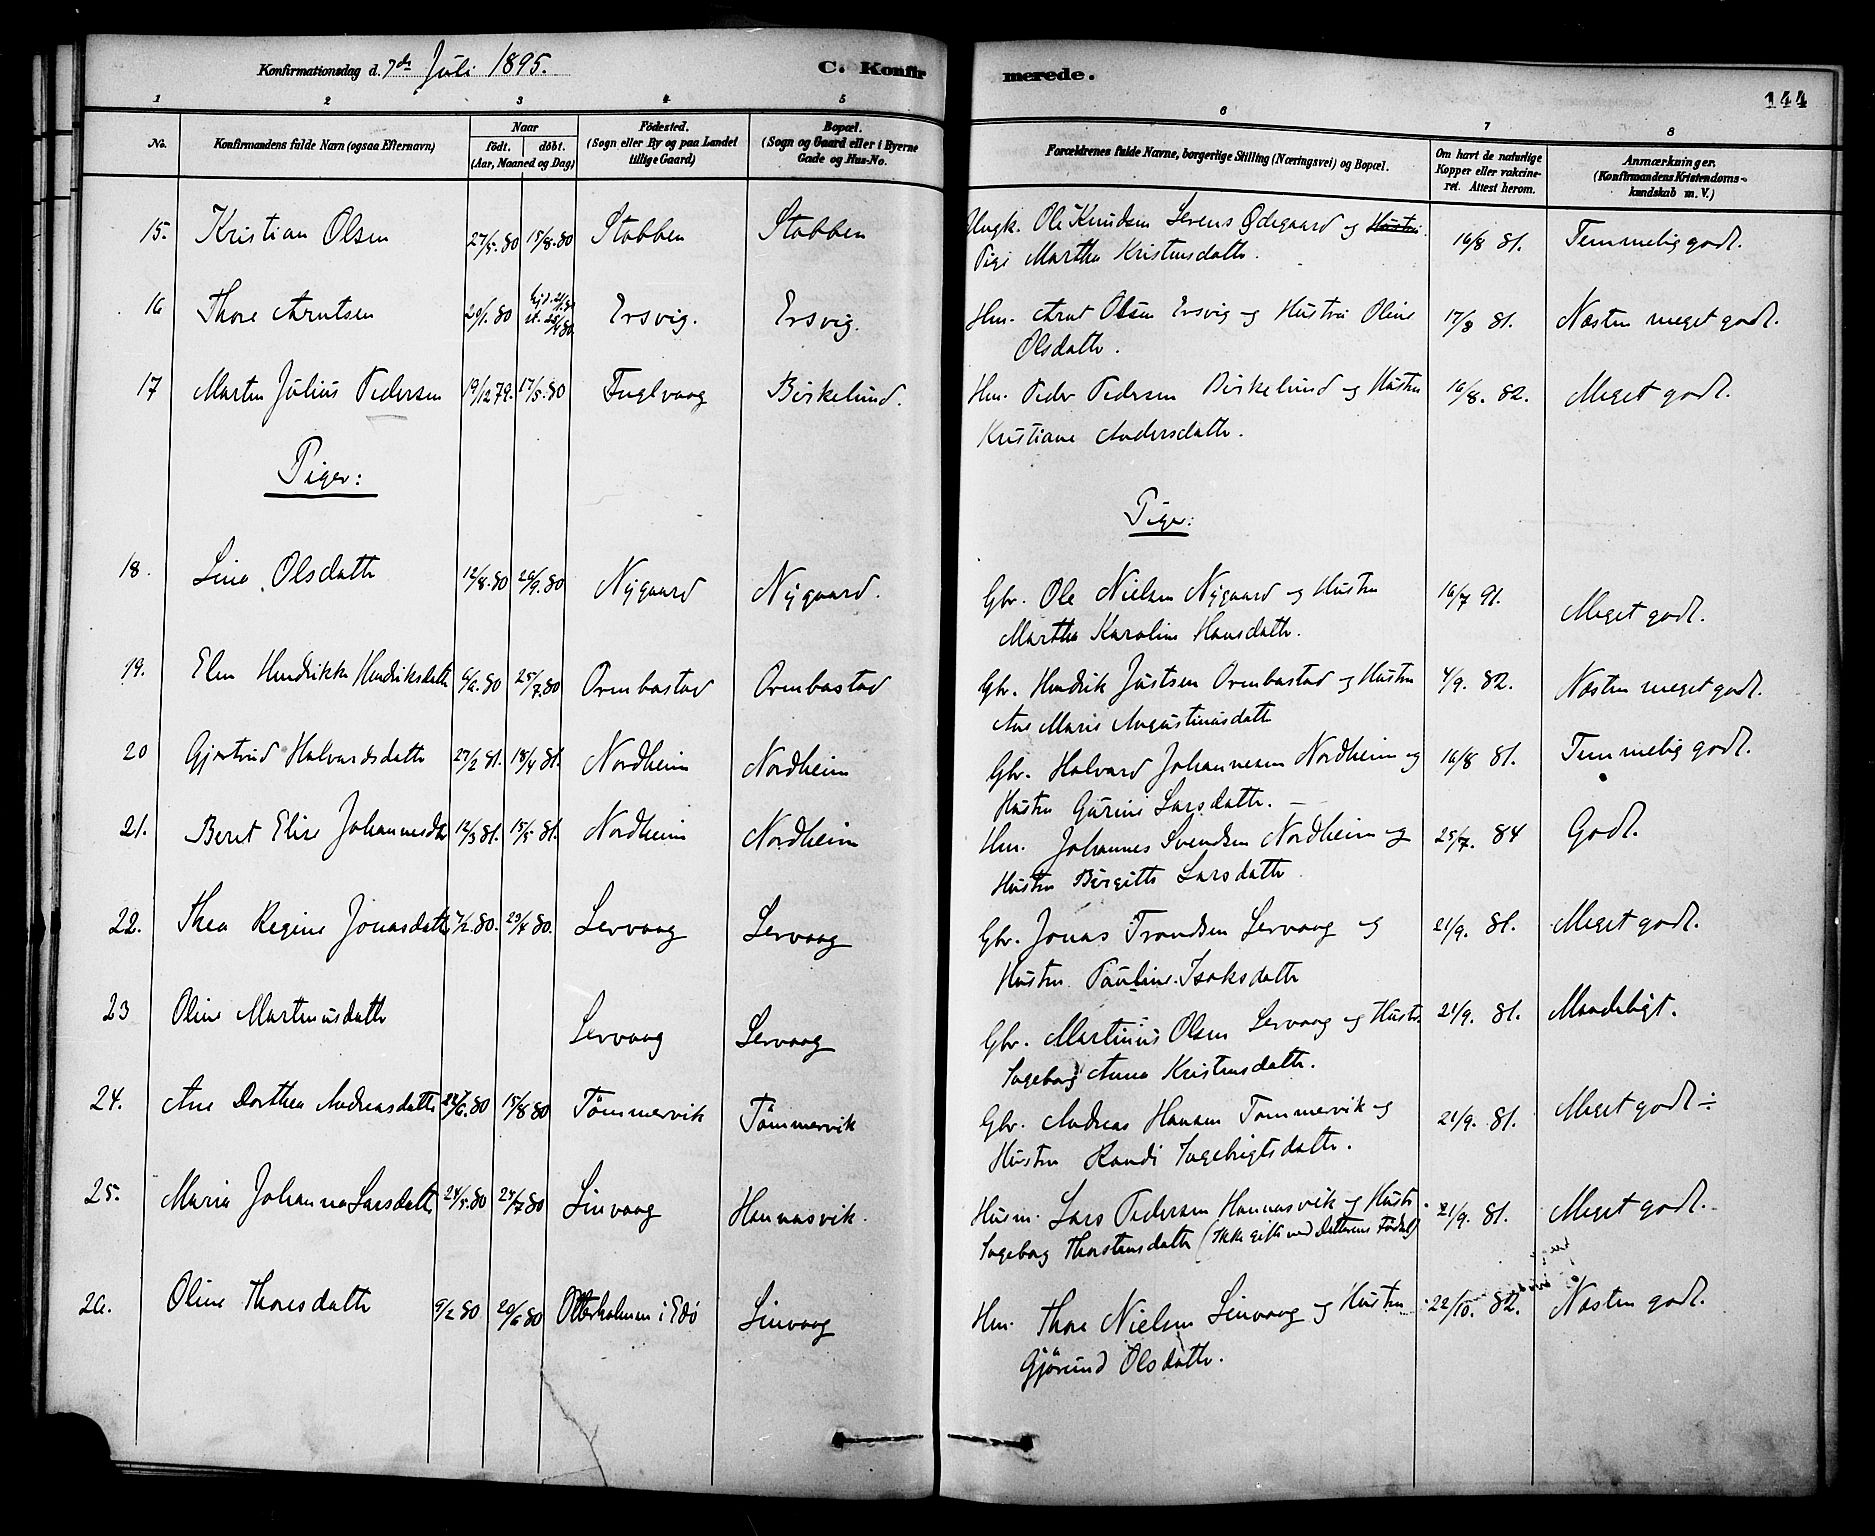 Konfirmationsdag d. 7de Juli 1895.
C. Konfirmerede.
144
1 2 3 4 5 6 7 8
No.
Konfirmandens fulde Navn (ogsaa Efternavn)
Naar
født. døbt.
(Aar, Maaned og Dag)
Fødested.
(Sogn eller By og paa Landet
tillige Gaard)
Bopæl.
(Sogn og Gaard eller i Byerne
Gade og Hus-No.
Forældrenes fulde Navne, borgerlige Stilling (Næringsvei) og Bopæl.
Om havt de naturlige
Kopper eller vakcine-
ret. Attest herom.
Anmærkninger.
(Konfirmandens Kristendoms-
kundskab m. V.)
15. Kristian Olsen 27/5. 80 15/8. 80 Stabben Stabben Ungk. Ole Knudsen Ødegaard og Hustru 16/8 81. Temmelig godt.
Pige Martha Kristensdattr.
16 Thore Arntsen 20/1. 80 Ersvig. Ersvig. Hm. Arnt Olsen Ersvig og Hustru Oline 17/8 81. Næsten meget godt.
Olsdattr.
17 Martin Julius Pedersen 19/12 79. 17/5. 80 Fuglvaag Birkelund. Hm. Peder Pedersen Birkelund og Hustru 16/8. 82. Meget godt.
Kristiane Andersdattr.
Piger: Piger:
18. Lina Olsdattr 12/8. 80 26/9. 80 Nygaard Nygaard. Gbr. Ole Nielsen Nygaard og Hustru 16/7 91. Meget godt.
Martha Karoline Hansdattr.
19. Elen Hendrikke Hendriksdattr 6/6. 80 25/7. 80 Orenbastad Orenbastad Gbr. Hendrik Justsen Orenbastad og Hustru 4/9. 82. Næsten meget godt.
Ane Marie Augustinusdattr
20 Gjertrud Halvardsdattr 27/2 81. 18/4 81. Nordheim Nordheim Gbr. Halvard Johannesen Nordheim og 16/8 81. Temmelig godt.
Hustru Gurine Larsdattr.
21. Beret Elise Johannesdtr 12/3 81. 15/5 81. Nordheim Nordheim Hm. Johannes Svendsen Nordheim og 25/7. 84 Godt.
Hustru Birgitte Larsdattr
22. Thea Regine Jonasdattr 7/2. 80. 29/4 80. Lervaag Lervaag Gbr. Jonas Trondsen Lervaag og 21/9. 81. Meget godt.
Hustru Pauline Isaksdattr
23 Oline Martinusdattr Lervaag Lervaag Gbr. Martinus Olsen Lervaag og Hustr. 21/9. 81. Maadeligt.
Ingeborg Anna Kristensdattr.
24. Ane Dorthea Andreasdattr 24/6. 80 15/8 80 Tømmervik Tømmervik Gbr. Andreas Hansen Tømmervik og 21/9. 81. Meget godt ÷
Hustru Randi Ingebrigtsdattr.
25. Maria Johanna Larsdattr 24/5. 80 25/7 80 Linvaag Hannasvik. Husm. Lars Pedersen Hannasvik og Hustr. 21/9. 81. Meget godt.
Ingeborg Thorstensdattr (Ikke gifte ved Datterens Fødsel)
26. Oline Thoresdattr 9/2 80 20/6 80 Otterholmen i Edø Linvaag Hm. Thore Nielsen Linvaag og Hustru 22/10. 82. Næsten godt.
Gjørund Olsdattr.